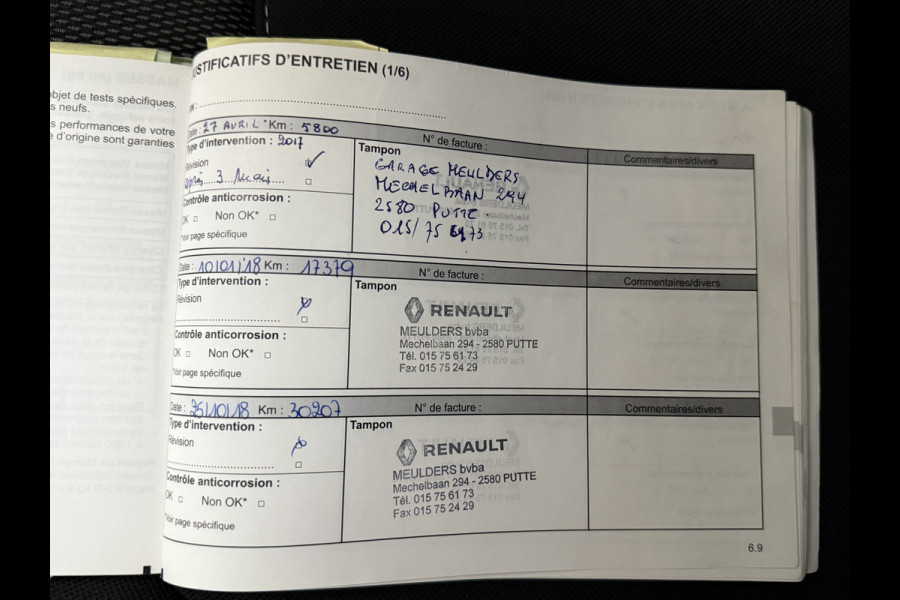 USTIFICATIFS D'ENTRETIEN (1/6)
objet de tests spécifiques.
s neufs.
s performances de votre
e d'origine sont garanties
Date : 27 AVRIL Km : 5800
N° de facture :
Commentaires/divers
Type d'intervention : 2017
Révision
après 3 Mois
Contrôle anticorrosion :
OK □ Non OK* □
*Voir page spécifique
Tampon
GARAGE MEULDERS
MECHELBAAN 294
2580 PUTTE
015/75 6173
Date : 10/01/18 Km : 17379
N° de facture :
Commentaires/divers
Type d'intervention :
Révision
Contrôle anticorrosion :
OK □ Non OK* □
*Voir page spécifique
Tampon
RENAULT
MEULDERS bvba
Mechelbaan 294 - 2580 PUTTE
Tél. 015 75 61 73
Fax 015 75 24 29
Date : 25/10/18 Km : 30207
N° de facture :
Commentaires/divers
Type d'intervention :
Révision
Contrôle anticorrosion :
OK □ Non OK* □
*Voir page spécifique
Tampon
RENAULT
MEULDERS bvba
Mechelbaan 294 - 2580 PUTTE
Tél. 015 75 61 73
Fax 015 75 24 29
6.9